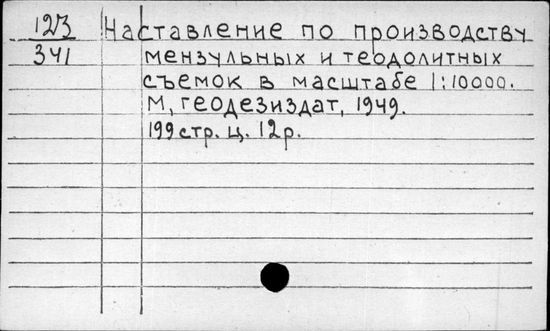 123 Наставление по производству
341 мензульных и теодолитных
съемок в масштабе 1:10000.
М, геодезиздат, 1949.
199 стр. ц. 12р.